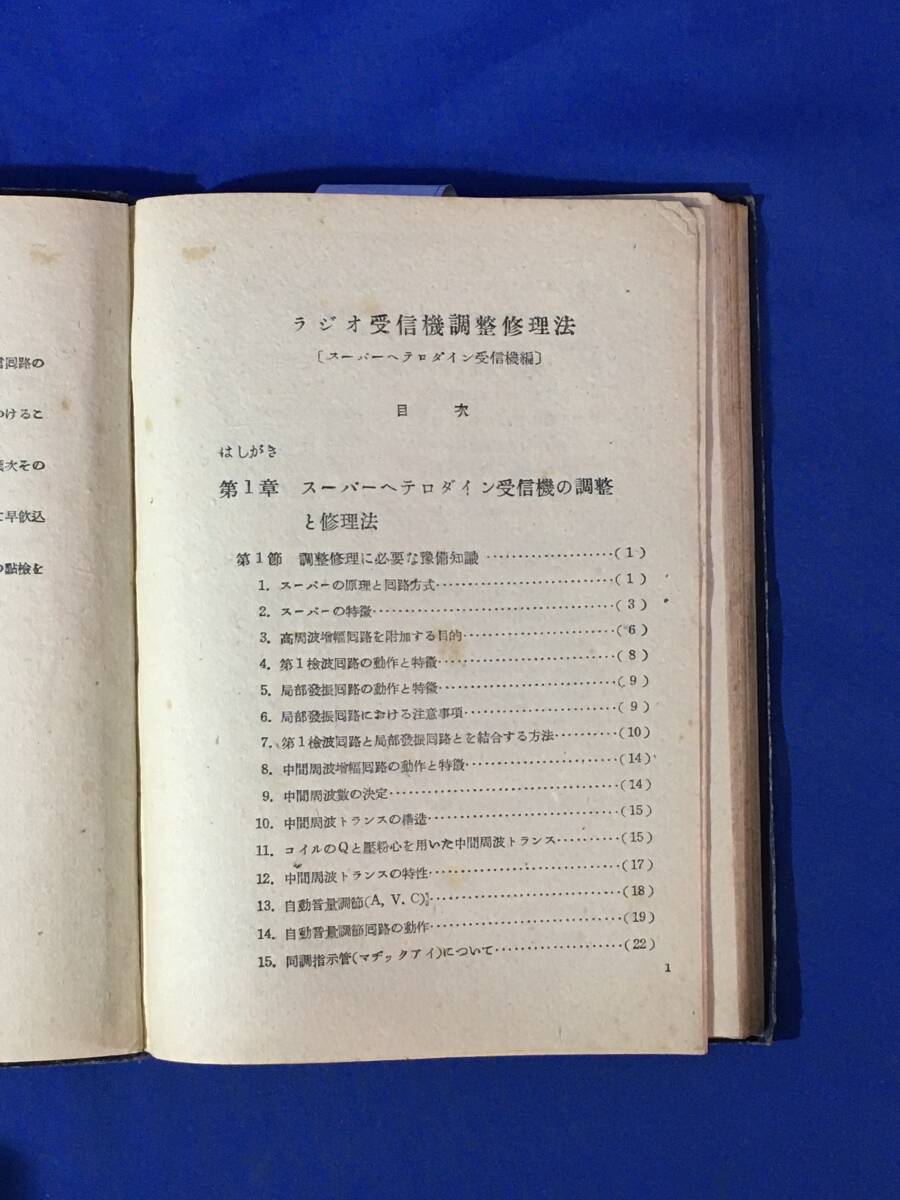 ラジオ受信機調整修理法
〔スーパーヘテロダイン受信機編〕
目 次
はしがき
第1章 スーパーヘテロダイン受信機の調整
と修理法
第1節 調整修理に必要な豫備知識…………………(1)
1. スーパーの原理と回路方式…………………………(1)
2. スーパーの特徴…………………………………(3)
3. 高周波増幅回路を附加する目的……………………(6)
4. 第1檢波回路の動作と特徴…………………………(8)
5. 局部發振回路の動作と特徴…………………………(9)
6. 局部發振回路における注意事項……………………(9)
7. 第1檢波回路と局部發振回路とを結合する方法………(10)
8. 中間周波增幅回路の動作と特徴……………………(14)
9. 中間周波数の決定…………………………………(14)
10. 中間周波トランスの構造……………………………(15)
11. コイルのQと壓粉心を用いた中間周波トランス………(15)
12. 中間周波トランスの特性……………………………(17)
13. 自動音量調節(A, V. C)……………………………(18)
14. 自動音量調節回路の動作……………………………(19)
15. 同調指示管(マヂックアイ)について…………………(22)
1
回路の
つけるこ
次その
早飮込
點檢を